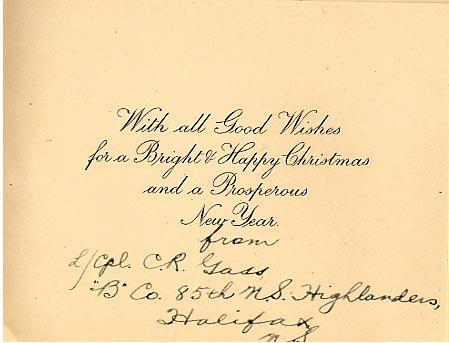 With all Good Wishes
for a Bright & Happy Christmas
and a Prosperous
New Year.
from
L/Cpl. C.R. Gass
"B" Co. 85th N.S. Highlanders,
Halifax
N.S